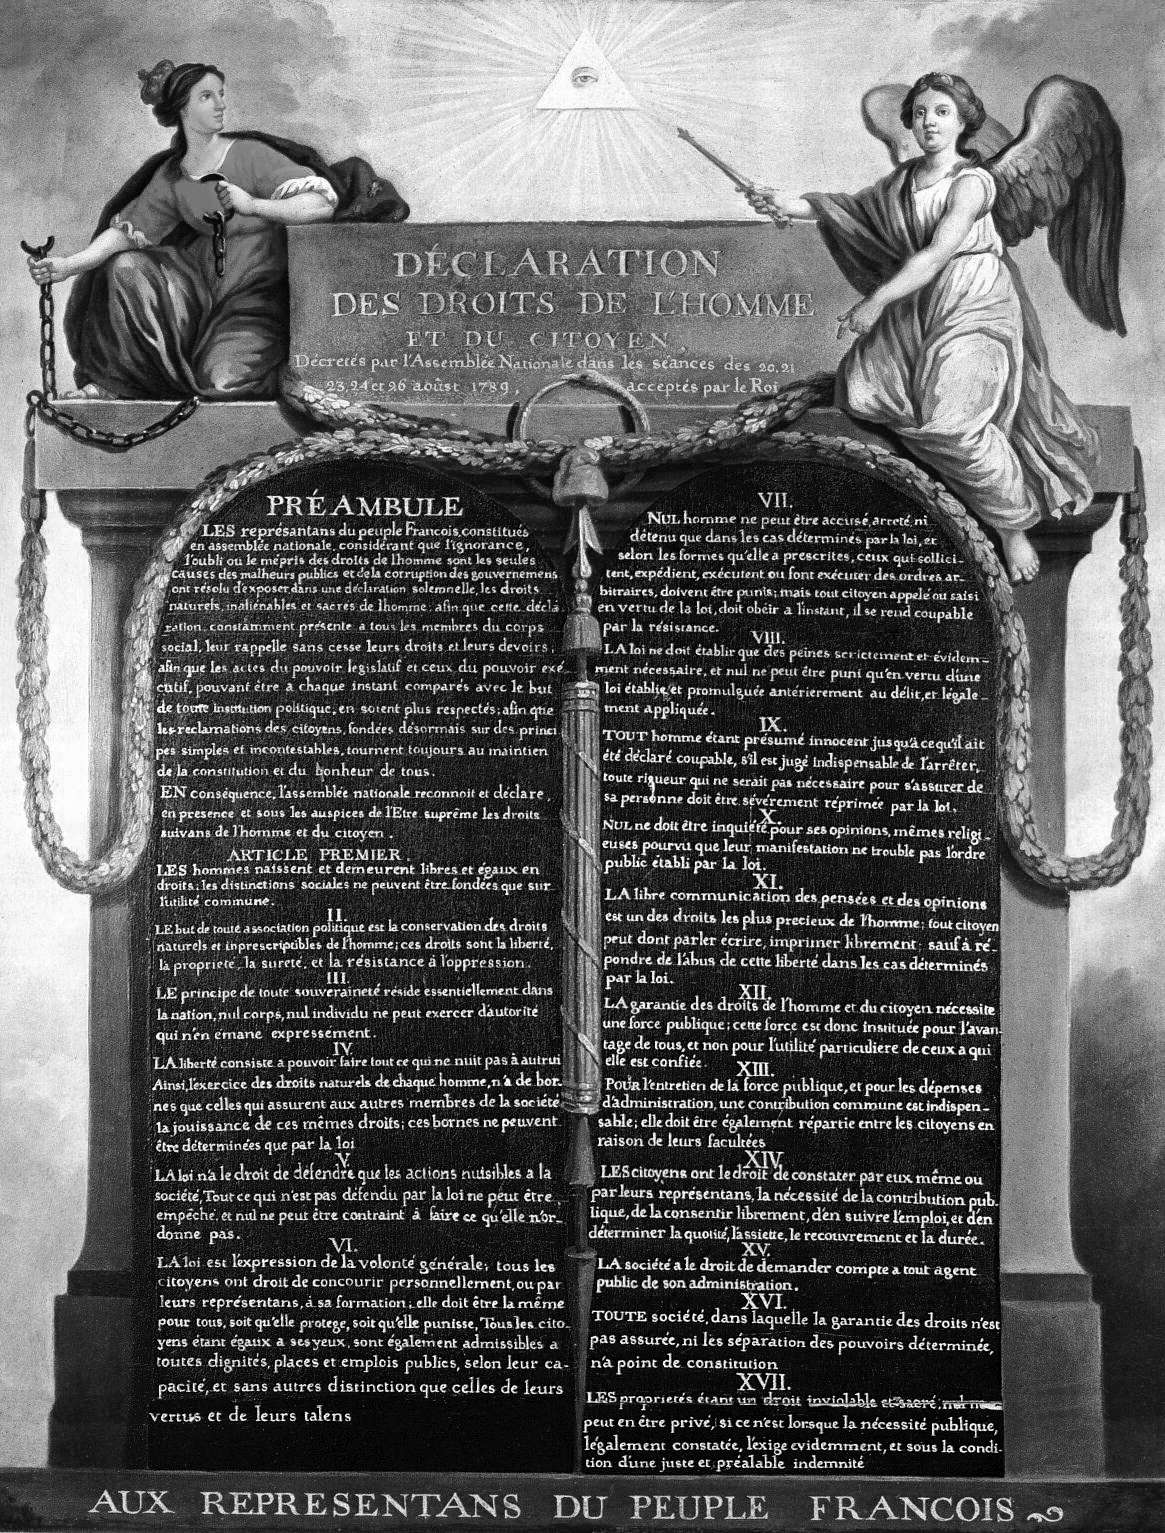 DÉCLARATION
DES DROITS DE L'HOMME
ET DU CITOYEN.
Décretés par l'Assemblée Nationale dans les séances des 20, 21
23, 24 et 26 août 1789, acceptés par le Roi
PRÉAMBULE
LES représantans du peuple Francois, constitués
en assemblée nationale, considérant que l'ignorance,
l'oubli ou le mépris des droits de l'homme sont les seules
causes des malheurs publics et de la corruption des gouvernemens
ont résolu d'exposer, dans une déclaration solemnelle, les droits
naturels, inaliénables et sacrés de l'homme; afin que cette décla
ration, constamment présente a tous les membres du corps
social, leur rappelle sans cesse leurs droits et leurs devoirs;
afin que les actes du pouvoir législatif et ceux du pouvoir exé
cutif, pouvant être a chaque instant comparés avec le but
de toute institution politique, en soient plus respectés; afin que
les reclamations des citoyens, fondées désormais sur des princi
pes simples et incontestables, tournent toujours au maintien
de la constitution et du bonheur de tous.
EN conséquence, l'assemblée nationale reconnoit et déclare,
en presence et sous les auspices de l'Etre suprême les droits
suivans de l'homme et du citoyen.
ARTICLE PREMIER.
LES hommes naissent et demeurent libres et égaux en
droits; les distinctions sociales ne peuvent être fondées que sur
l'utilité commune.
II.
LE but de toute association politique est la conservation des droits
naturels et inprescriptibles de l'homme; ces droits sont la liberté,
la propriete, la sureté, et la résistance à l'oppression.
III.
LE principe de toute souveraineté réside essentiellement dans
la nation, nul corps, nul individu ne peut exercer d'autorité
qui n'en emane expressement.
IV.
LA liberté consiste a pouvoir faire tout ce qui ne nuit pas à autrui
Ainsi, l'exercice des droits naturels de chaque homme, n'a de bor-
nes que celles qui assurent aux autres membres de la société
la jouissance de ces mêmes droits; ces bornes ne peuvent
être déterminées que par la loi
V.
LA loi n'a le droit de défendre que les actions nuisibles a la
société, Tout ce qui n'est pas défendu par la loi ne peut être
empêché, et nul ne peut être contraint à faire ce qu'elle n'or-
donne pas.
VI.
LA loi est l'expression de la volonté générale; tous les
citoyens ont droit de concourir personnellement, ou par
leurs représentans, à sa formation; elle doit être la même
pour tous, soit qu'elle protege, soit qu'elle punisse, Tous les cito-
yens étant égaux a ses yeux, sont également admissibles a
toutes dignités, places et emplois publics, selon leur ca-
pacité, et sans autres distinction que celles de leurs
vertus et de leurs talens
VII.
NUL homme ne peut être accusé, arreté, ni
détenu que dans les cas déterminés par la loi, et
selon les formes qu'elle a prescrites, ceux qui sollici-
tent, expédient, exécutent ou font exécuter des ordres ar-
bitraires, doivent être punis; mais tout citoyen appelé ou saisi
en vertu de la loi, doit obéir a l'instant, il se rend coupable
par la résistance.
VIII.
LA loi ne doit établir que des peines strictement et évidem-
ment nécessaire, et nul ne peut être puni qu'en vertu d'une
loi établie, et promulguée antérierement au délit, et légale-
ment appliquée.
IX.
TOUT homme étant présumé innocent jusqu'à ce qu'il ait
été déclaré coupable, s'il est jugé indispensable de l'arrêter,
toute rigueur qui ne serait pas nécessaire pour s'assurer de
sa personne doit être sévèrement réprimée par la loi.
X.
NUL ne doit être inquiété pour ses opinions, mêmes religi-
euses pourvu que leur manifestation ne trouble pas l'ordre
public établi par la loi.
XI.
LA libre communication des pensées et des opinions
est un des droits les plus precieux de l'homme; tout citoyen
peut dont parler écrire, imprimer librement; sauf à ré-
pondre de l'abus de cette liberté dans les cas déterminés
par la loi.
XII.
LA garantie des droits de l'homme et du citoyen nécessite
une force publique; cette force est donc instituée pour l'avan-
tage de tous, et non pour l'utilité particuliere de ceux a qui
elle est confiée.
XIII.
POUR l'entretien de la force publique, et pour les dépenses
d'administration, une contribution commune est indispen-
sable; elle doit être également répartie entre les citoyens en
raison de leurs facultées
XIV.
LES citoyens ont le droit de constater par eux même ou
par leurs représentans, la nécessité de la contribution pub-
lique, de la consentir librement, d'en suivre l'emploi, et d'en
déterminer la quotité, l'assiette, le recouvrement et la durée.
XV.
LA société a le droit de demander compte a tout agent
public de son administration.
XVI.
TOUTE société, dans laquelle la garantie des droits n'est
pas assurée, ni les séparation des pouvoirs déterminée,
n'a point de constitution
XVII.
LES proprietés étant un droit inviolable et sacré, nul ne
peut en être privé, si ce n'est lorsque la nécessité publique,
légalement constatée, l'exige evidemment, et sous la condi-
tion d'une juste et préalable indemnité
AUX REPRESENTANS DU PEUPLE FRANCOIS